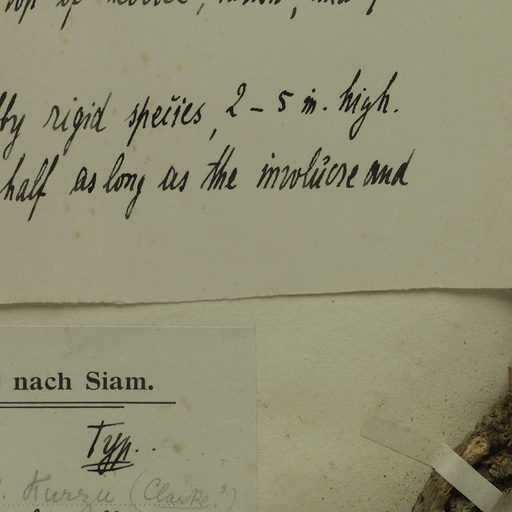 rigid species, 2 – 5 in. high.
half as long as the involucre and
nach Siam.
Typ.
Kurzu (Clarke?)